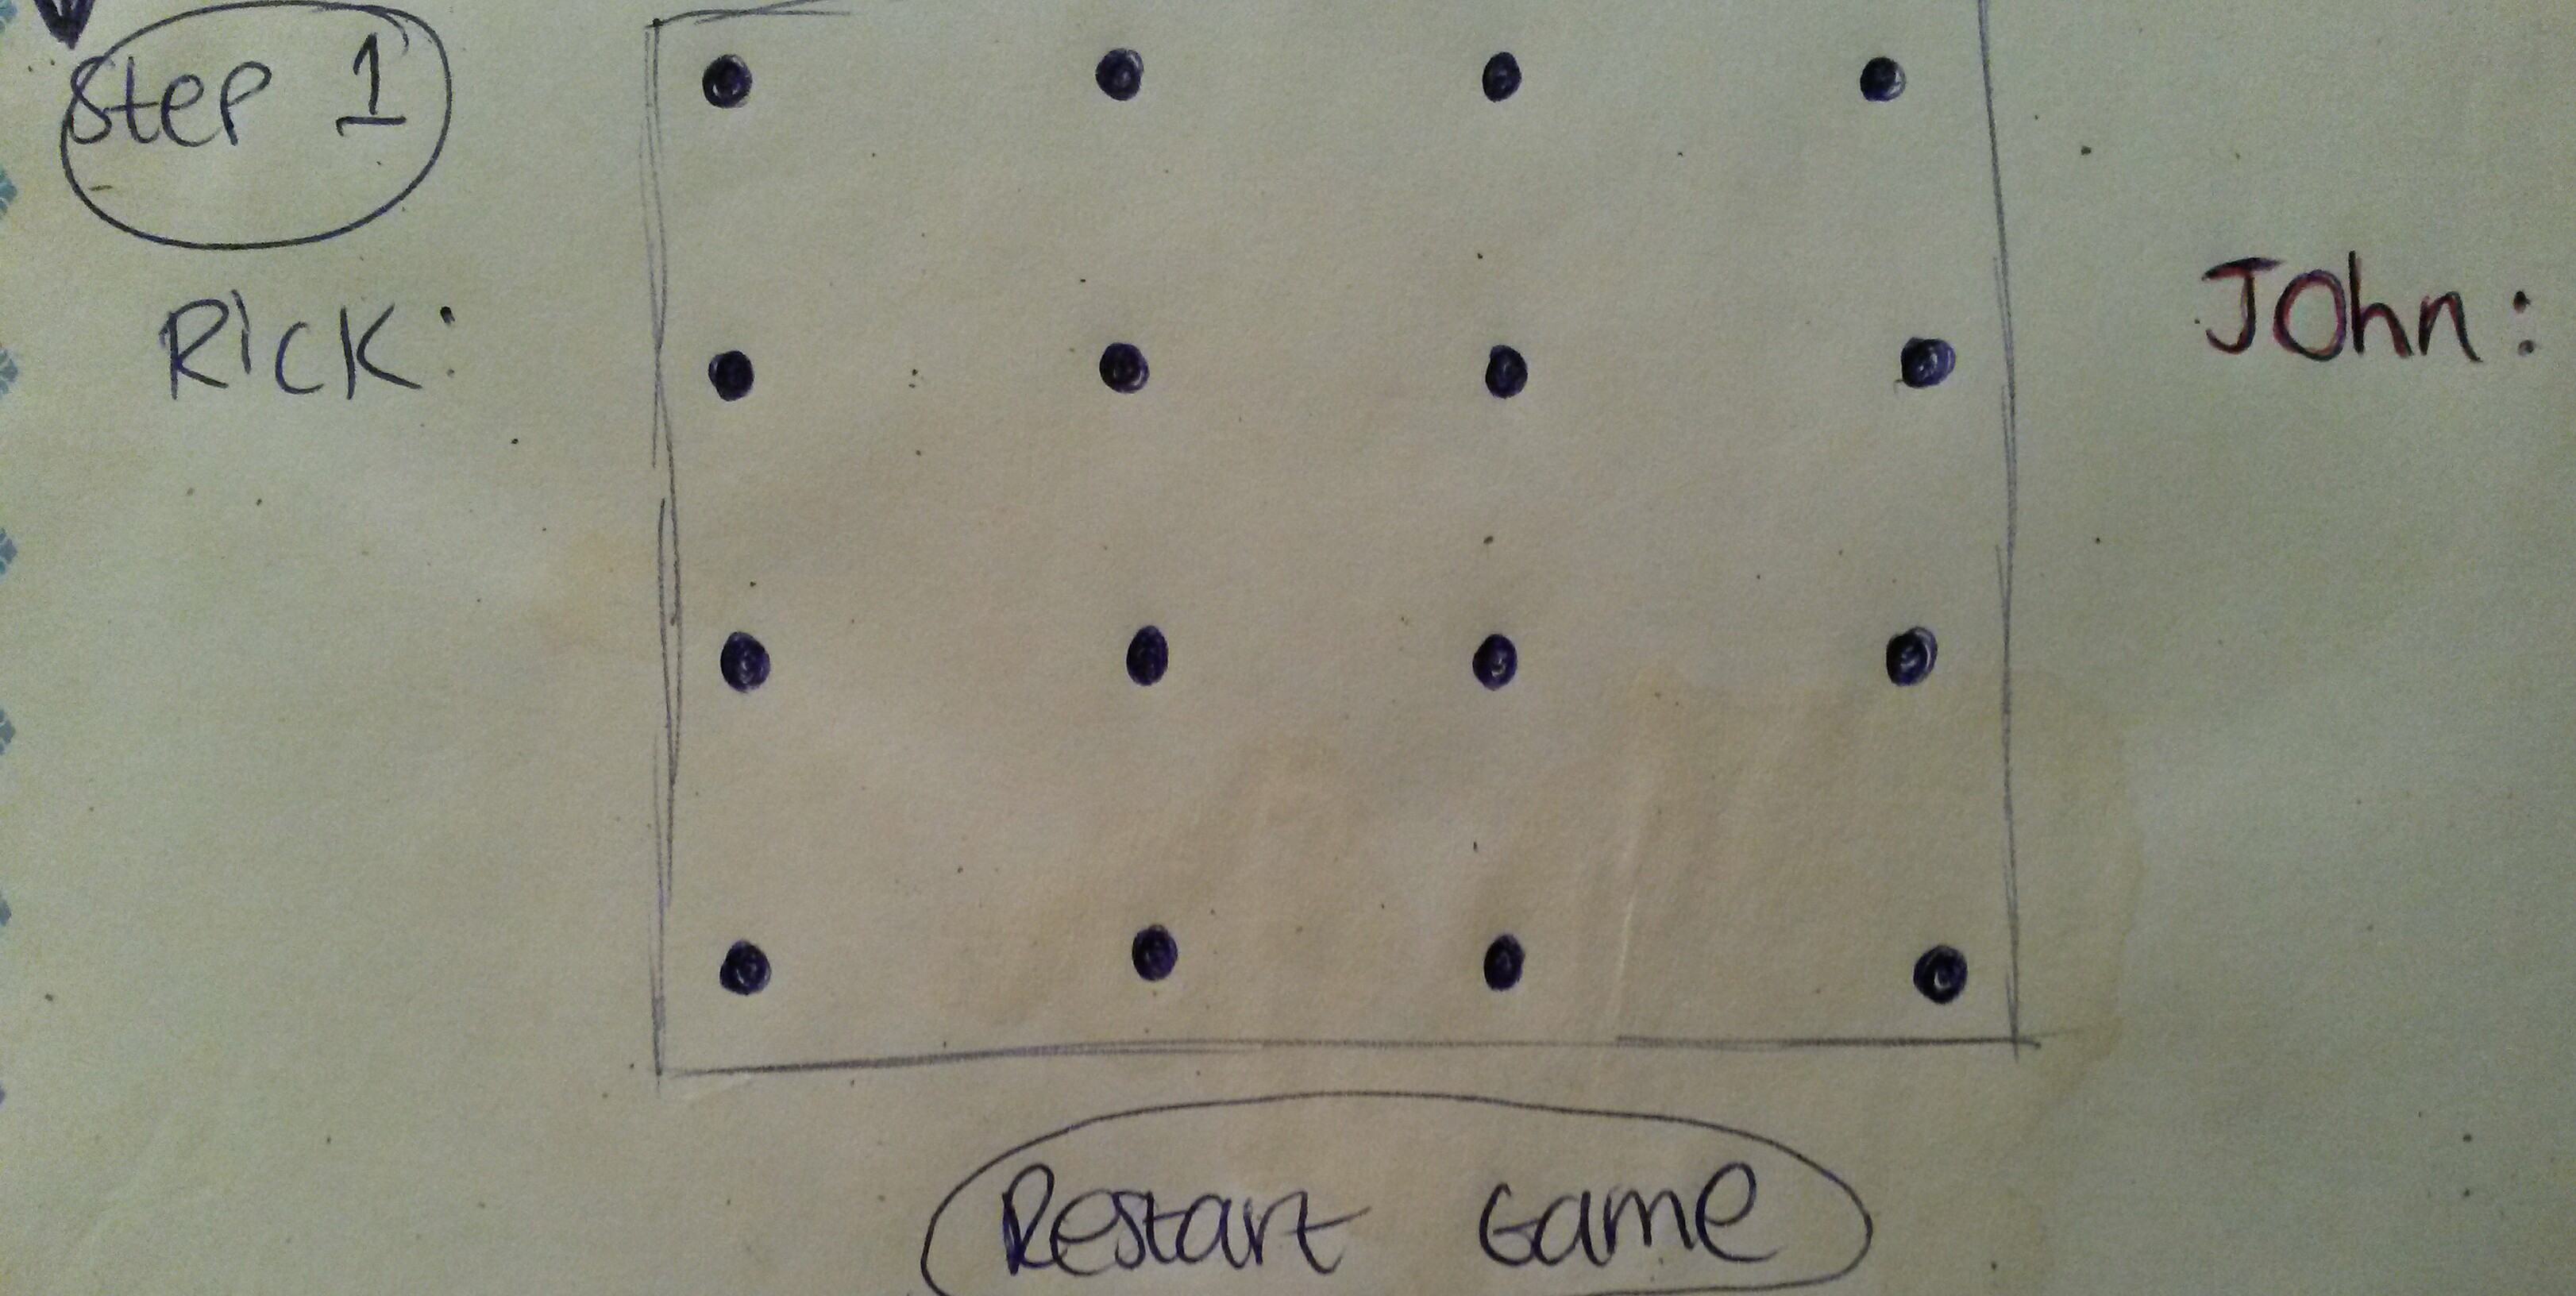 Step 1
Rick:
John:
Restart Game